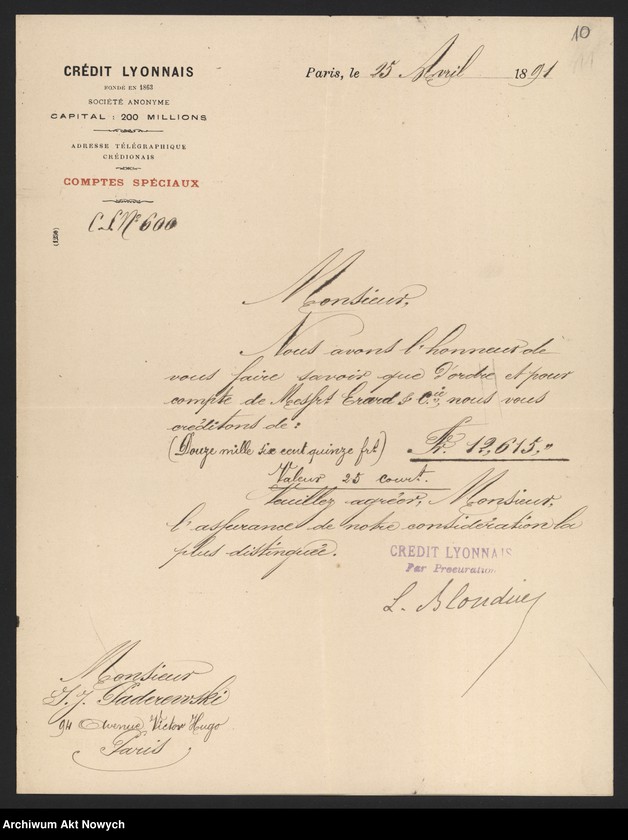 10
CRÉDIT LYONNAIS
FONDÉ EN 1863
SOCIÉTÉ ANONYME
CAPITAL : 200 MILLIONS
ADRESSE TÉLÉGRAPHIQUE
CRÉDIONAIS
COMPTES SPÉCIAUX
C.S. Nº 600
(1258)
Paris, le 25 Avril 1891
Monsieur,
Nous avons l'honneur de
vous faire savoir que d'ordre et pour
compte de Messrs Erard & Cie, nous vous
créditons de :
(Douze mille six cent quinze frs) Fr. 12,615,"
Valeur 25 court.
Veuillez agréer, Monsieur,
l'assurance de notre considération la
plus distinguée.
CREDIT LYONNAIS
Par Procuration
L. Blondin
Monsieur
I. J. Paderewski
94 Avenue Victor Hugo
Paris
Archiwum Akt Nowych